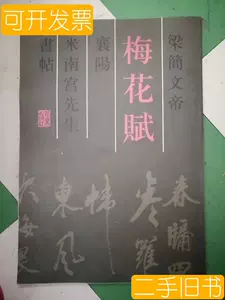 可开发票
梁簡文帝
梅花賦
襄陽
米南宮先生
書帖
東風
二手旧书